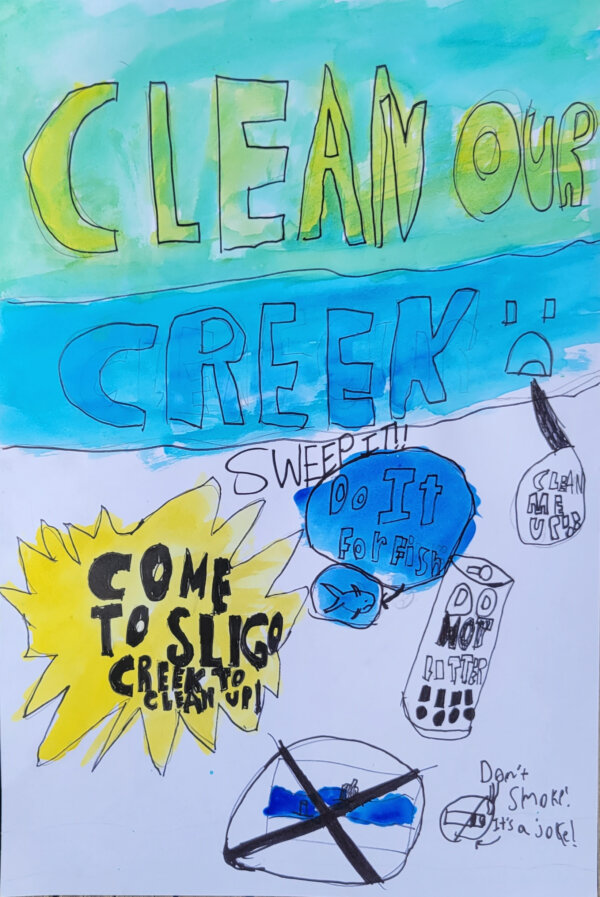 CLEAN OUR
CREEK
SWEEP IT!!
Do It
For Fish
CLEAN
ME
UP!!
COME
TO SLIGO
CREEK TO
CLEAN UP!
DO
NOT
LITTER
!!!!
Don't
Smoke!
It's a joke!